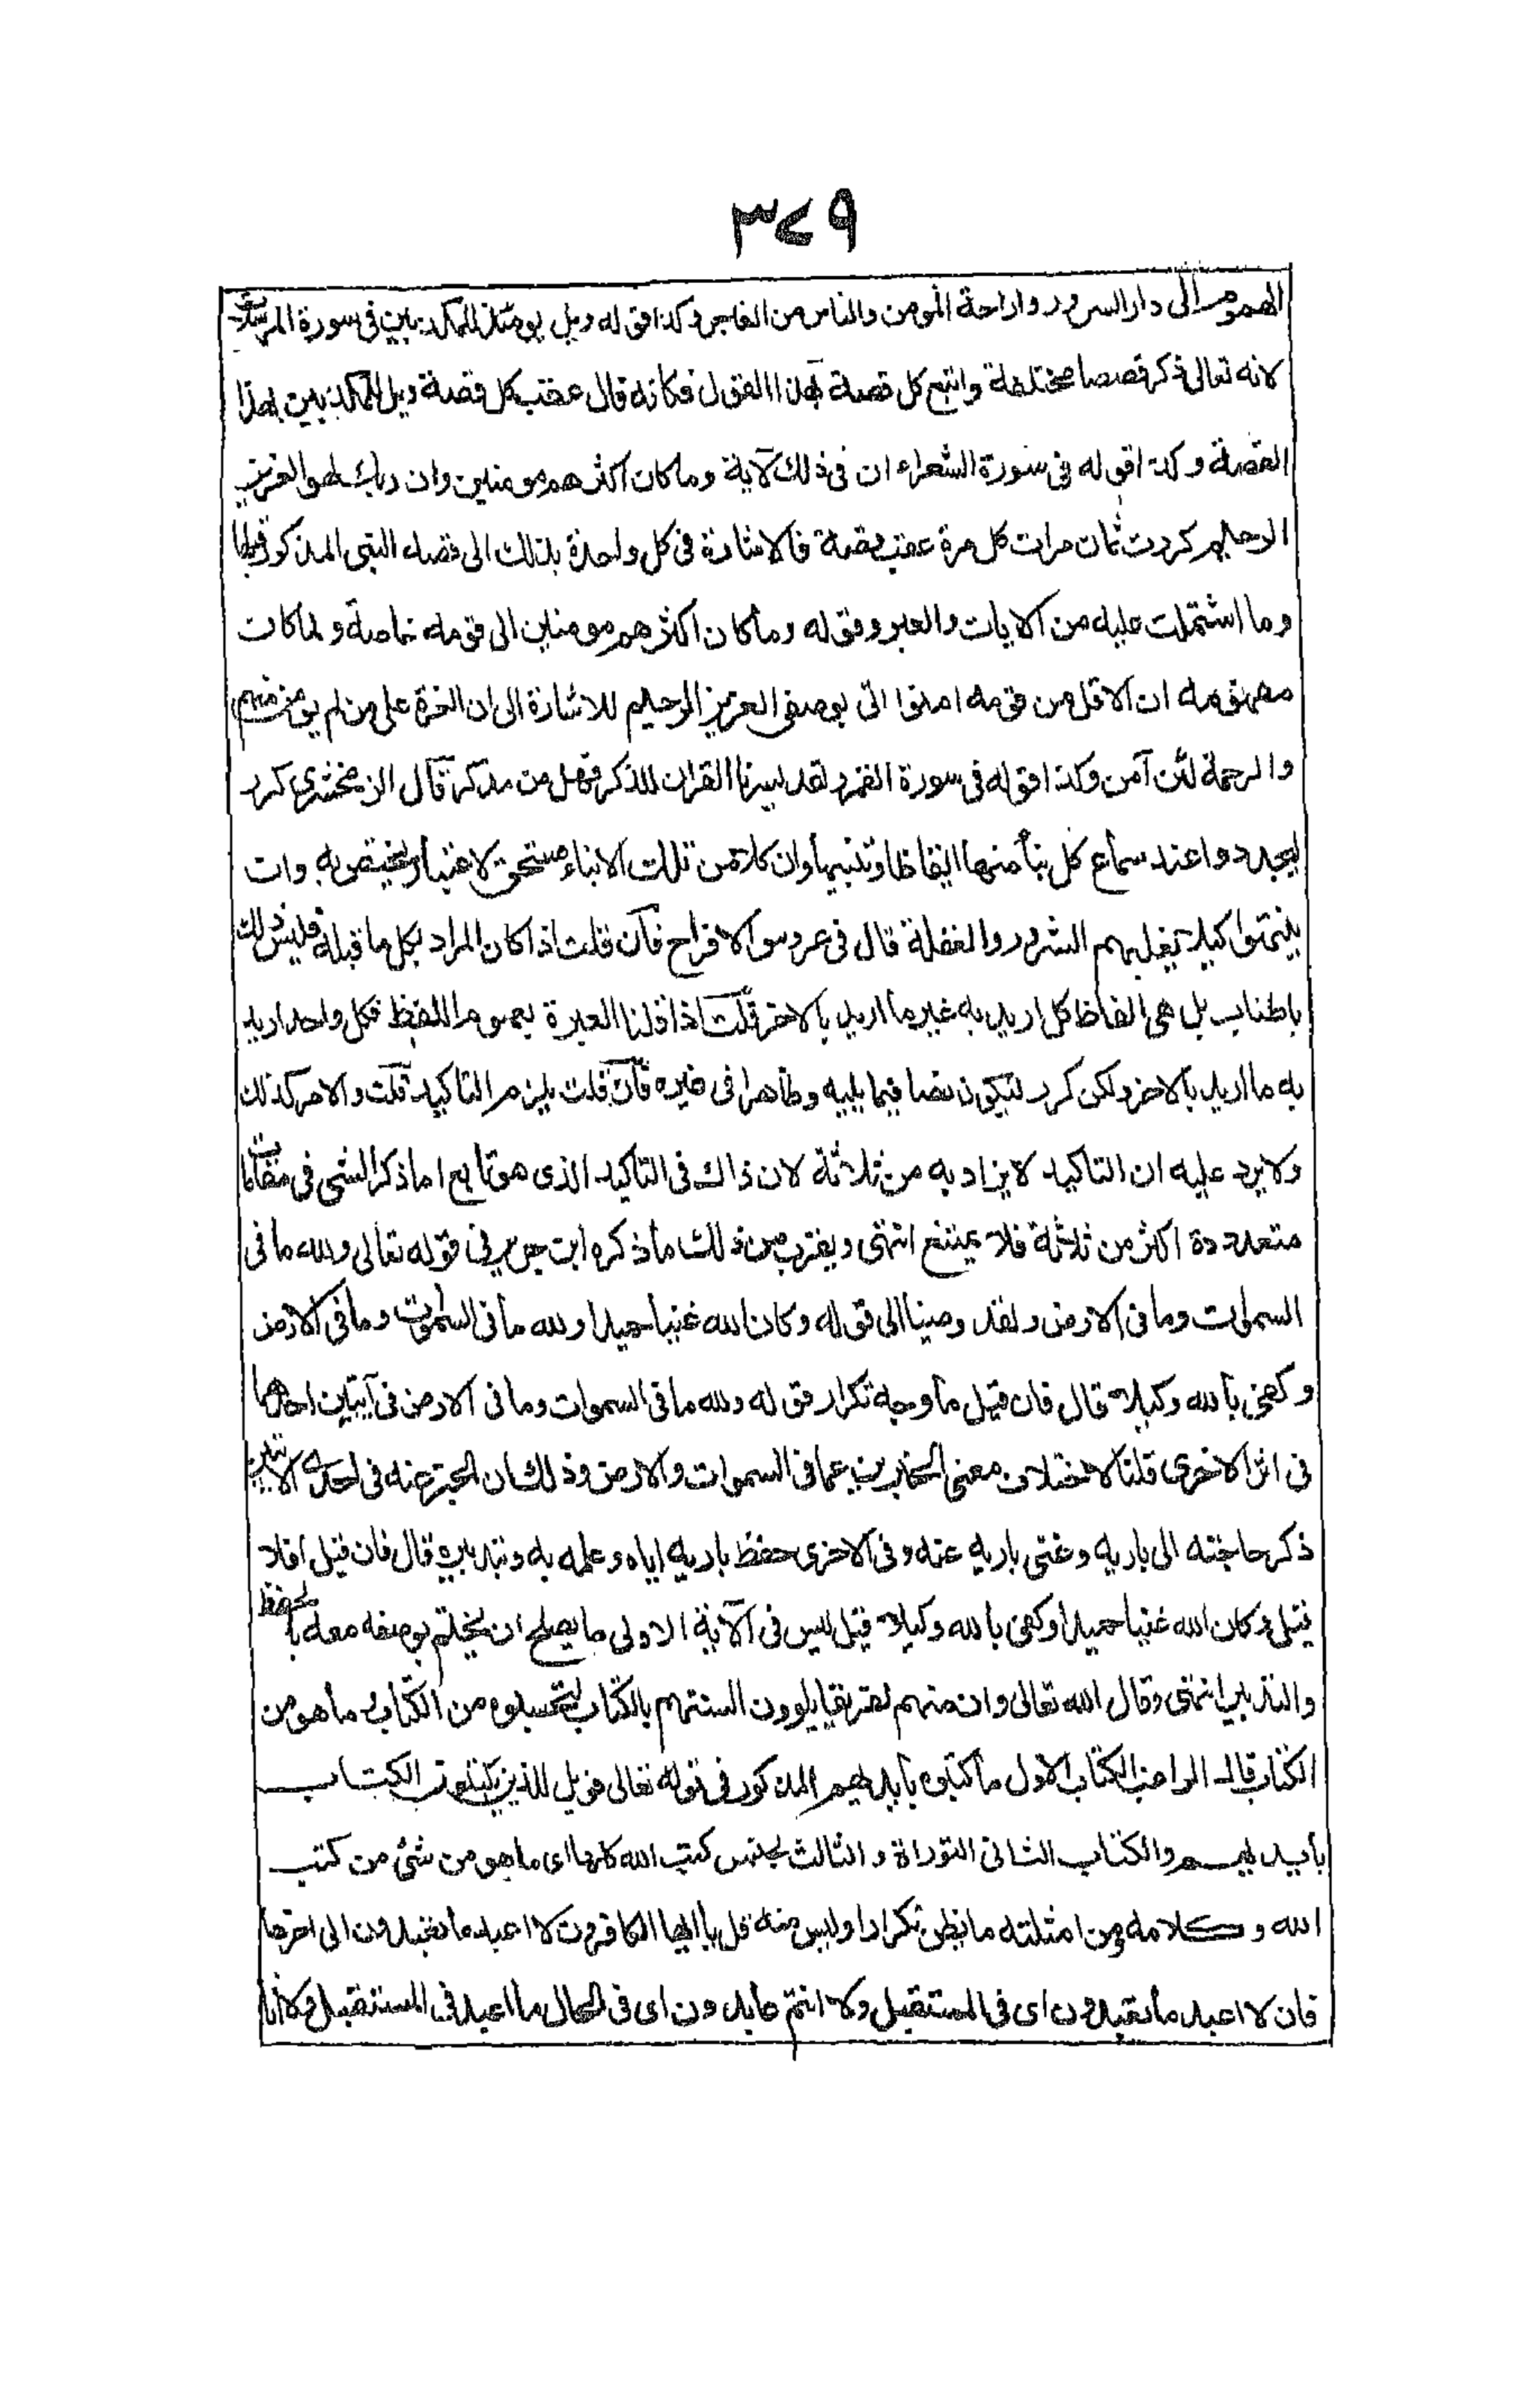 ٣٤٩
الهموم الى دار السرور واراحة المومن والناس من الفاجر وكذا قوله ويل يومئذ للمكذبين فى سورة المرسلات
لانه تعالى ذكر قصصا مختلفة واتبع كل قصة بهذا القول فكانه قال عقب كل قصة ويل للمكذبين بهذا
القصة وكذا قوله فى سورة الشعراء ان فى ذلك لآية وما كان اكثرهم مومنين وان ربك لهو العزيز
الرحيم كررت ثمان مرات كل مرة عقب قصة فالاشارة فى كل واحدة بذلك الى قصة النبى المذكور قبلها
وما اشتملت عليه من الايات والعبر وقوله وما كان اكثرهم مومنين الى قومه خاصة ولما كان
مفهومه ان الاقل من قومه امنوا اتى بوصفى العزيز الرحيم للاشارة الى ان العزة على من لم يومن منهم
والرحمة لمن آمن وكذا قوله فى سورة القمر ولقد يسرنا القران للذكر فهل من مدكر قال الزمخشرى كرر
ليجددوا عند سماع كل نبأ منها ايقاظا وتنبيها وان كلا من تلك الانباء مستحق لاعتبار يختص به وان
يتنبهوا كيلا يغلبهم السرور والغفلة قال فى عروس الافراح فان قلت اذا كان المراد بكل ما قبله فليس ذلك
باطناب بل هى الفاظ كل اريد به غير ما اريد بالاخر قلت اذا قلنا العبرة بعموم اللفظ فكل واحد اريد
به ما اريد بالاخر ولكن كرر ليكون نصا فيما يليه وظاهرا فى غيره فان قلت يلزم التاكيد قلت والامر كذلك
ولا يرد عليه ان التاكيد لا يزاد به من ثلاثة لان ذاك فى التاكيد الذى هو تابع اما ذكر الشى فى مقامات
متعددة اكثر من ثلاثة فلا يمتنع انتهى ويقرب من ذلك ما ذكره ابن جرير فى قوله تعالى ولله ما فى
السموات وما فى الارض ولقد وصينا الى قوله وكان الله غنيا حميدا ولله ما فى السموات وما فى الارض
وكفى بالله وكيلا قال فان قيل ما وجه تكرار قوله ولله ما فى السموات وما فى الارض فى آيتين احداهما
فى اثر الاخرى قلنا لاختلاف معنى الخبرين عما فى السموات والارض وذلك ان الخبر عنه فى احدى الآيتين
ذكر حاجته الى باريه وغنى باريه عنه وفى الاخرى حفظ باريه اياه وعلمه به وتدبيره قال فان قيل افلا
قيل وكان الله غنيا حميدا وكفى بالله وكيلا قيل ليس فى الآية الاولى ما يصلح ان يختم بوصفه معه بالحفظ
والتدبير انتهى وقال الله تعالى وان منهم لفريقا يلوون السنتهم بالكتاب لتحسبوه من الكتاب وما هو من
الكتاب قال الراغب الكتاب الاول ما كتبوه بايديهم المذكور فى قوله تعالى فويل للذين يكتبون الكتاب
بأيديهم والكتاب الثانى التوراة والثالث لجنس كتب الله كلها اى ما هو من شئ من كتب
الله وكلامه ومن امثلته ما يظن تكرارا وليس منه قل يا ايها الكافرون لا اعبد ما تعبدون الى اخرها
فان لا اعبد ما تعبدون اى فى المستقبل ولا انتم عابدون اى فى الحال ما اعبد فى المستقبل ولا انا